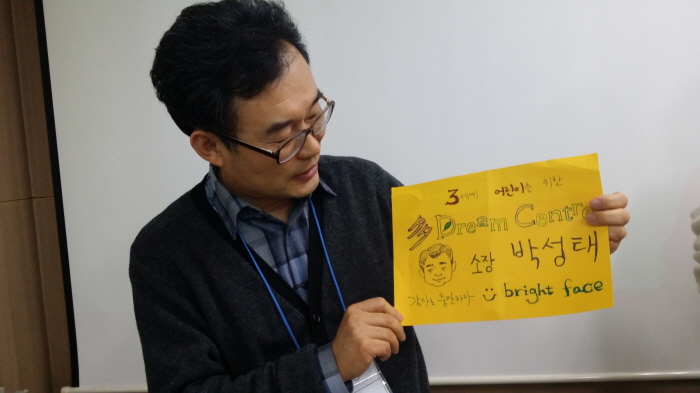 3세계 어린이를 위한
多 Dream Centre
소장 박성태
감사로 충만하자 bright face